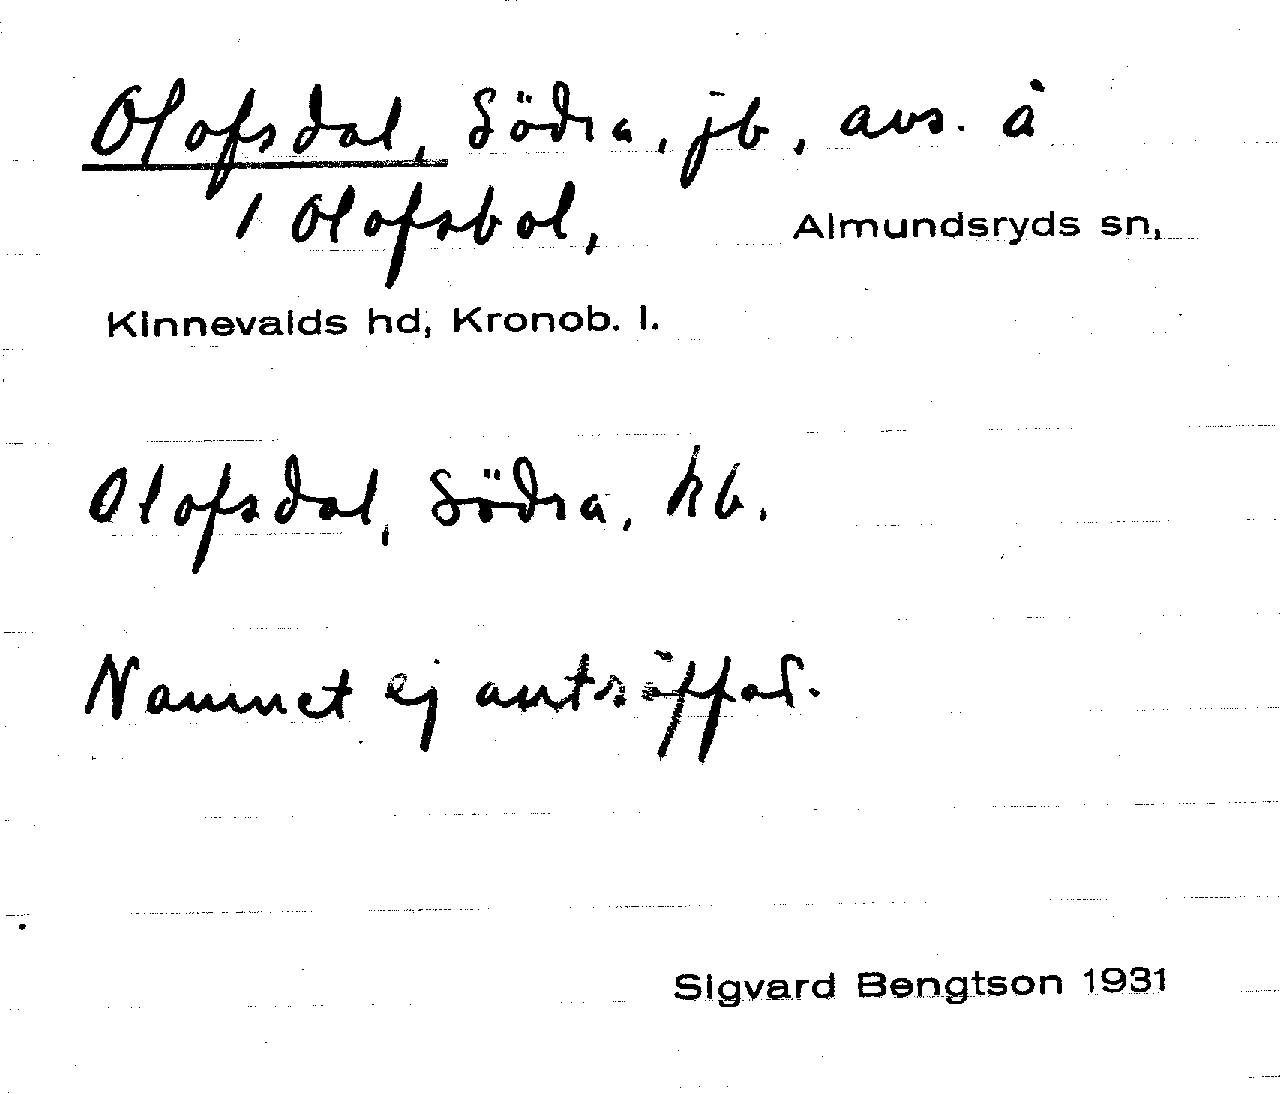 Olofsdal, Södra, jb, avs. å
1 Olofsbol, Almundsryds sn,
Kinnevalds hd, Kronob. l.
Olofsdal, Södra, kb.
Namnet ej anträffat.
Sigvard Bengtson 1931